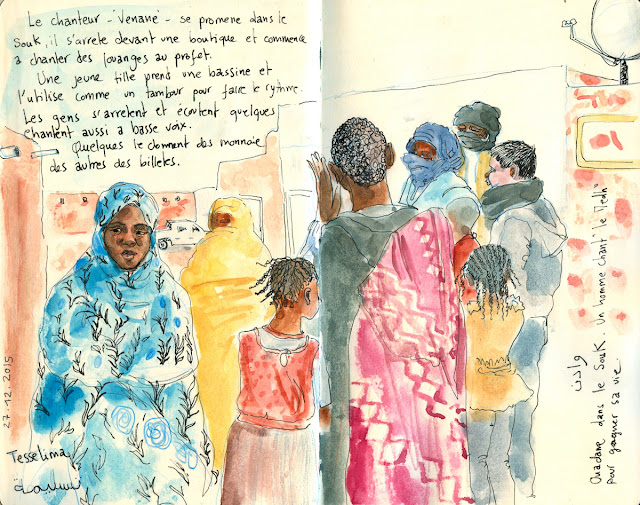 Le chanteur - 'Venane' - se promene dans le
Souk, il s'arrete devant une boutique et commence
a chanter des louanges au profet.
Une jeune fille prend une bassine et
l'utilise comme un tambour pour faire le rythme.
Les gens s'arretent et écoutent quelques
chantent aussi a basse voix.
Quelques le donnent des monnaie
des autres des billetes.
27.12.2015
Tesselima
تسليمة
وادان
Ouadane dans le Souk. Un homme chant le "Medh"
pour gangner sa vie.